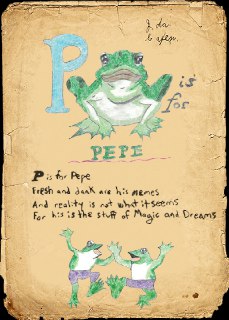 P is for
PEPE
P is for Pepe
Fresh and dank are his memes
And reality is not what it seems
For his is the stuff of Magic and Dreams